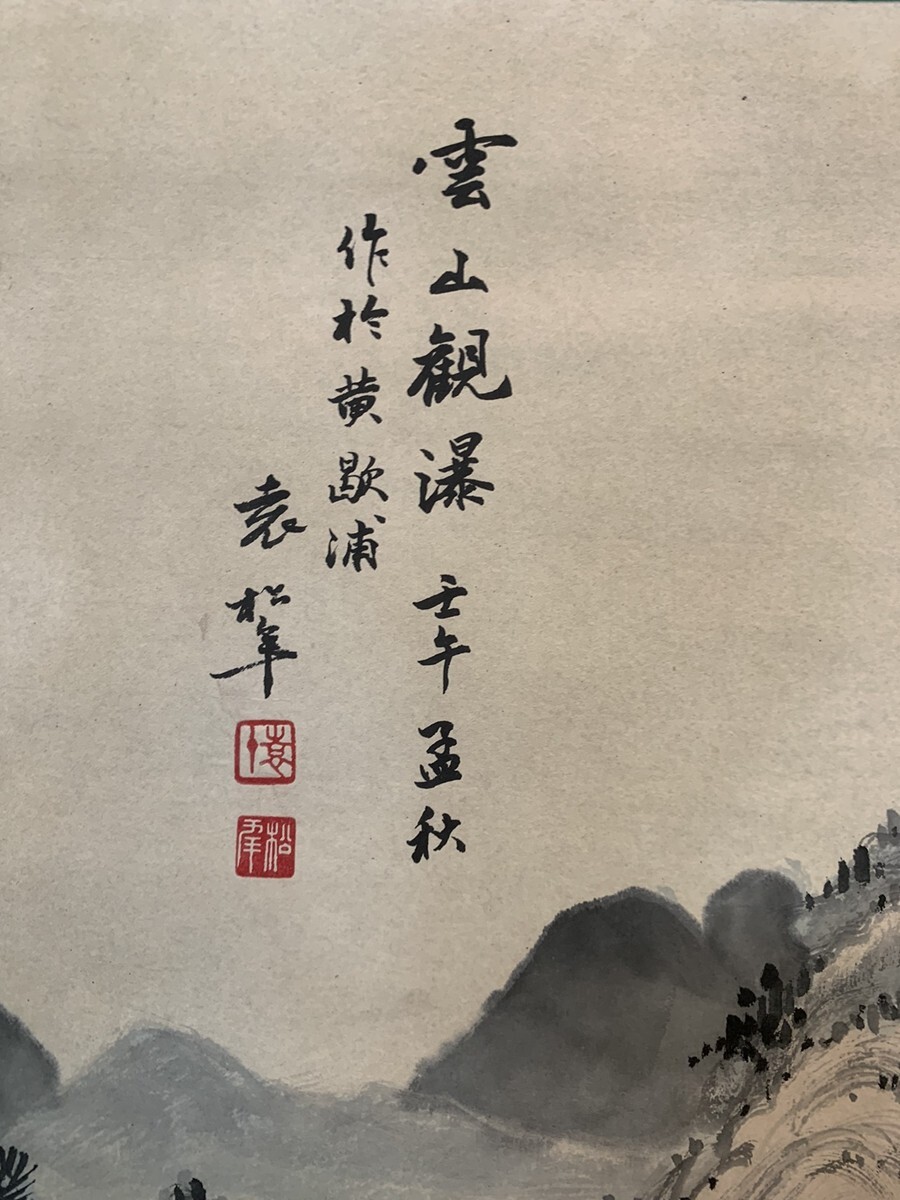 雲山觀瀑 壬午孟秋
作於黄歇浦
袁松年
袁
松年